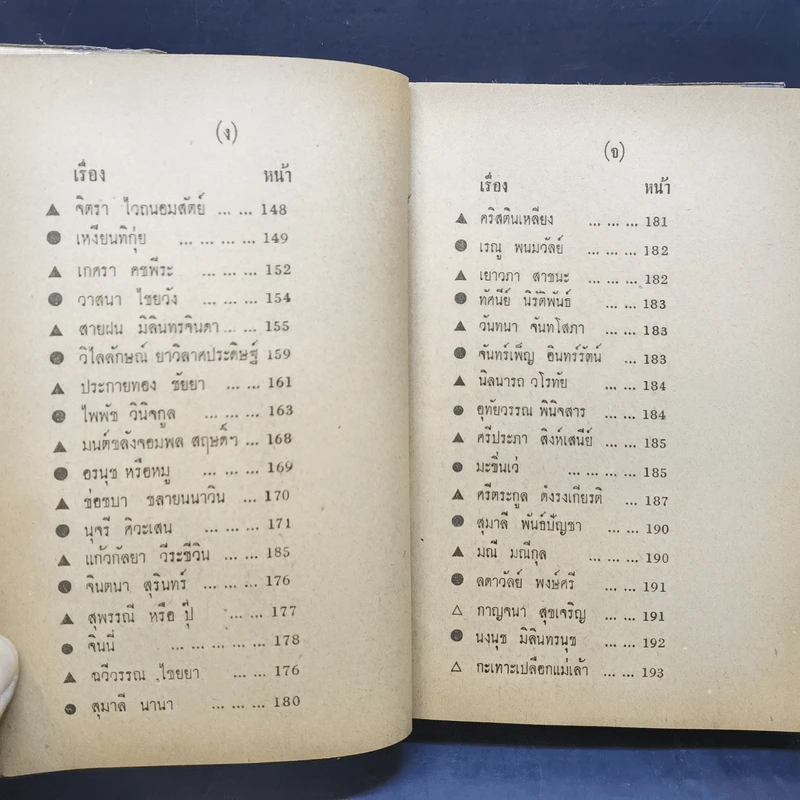 (ง)
เรื่อง หน้า
▲ จิตรา ไวถนอมสัตย์ ... ... 148
● เหงียนทิกุ่ย ... ... ... ... 149
▲ เกศรา คชพีระ ... ... ... 152
● วาสนา ไชยวัง ... ... ... 154
▲ สายฝน มิลินทรจินดา ... ... 155
● วิไลลักษณ์ ยาวิลาศประดิษฐ์ 159
▲ ประกายทอง ชัยยา ... ... 161
● ไพพัช วินิจกูล ... ... ... 163
▲ มนต์ขลังจอมพล สฤษดิ์ฯ ... 168
● อรนุช หรือหมู ... ... ... 169
▲ ช่อชบา ชลายนนาวิน ... 170
● นุจรี ศิวะเสน ... ... ... 171
▲ แก้วกัลยา วีระชีวิน ... ... 185
● จินตนา สุรินทร์ ... ... ... 176
▲ สุพรรณี หรือ ปุ๊ ... ... 177
● จินนี่ ... ... ... ... ... 178
▲ ฉวีวรรณ ไชยยา ... ... 176
● สุมาลี นานา ... ... ... 180
(จ)
เรื่อง หน้า
▲ คริสตินเหลียง ... ... ... 181
● เรณู พนมวัลย์ ... ... ... 182
▲ เยาวภา สาชนะ ... ... 182
● ทัศนีย์ นิรัติพันธ์ ... ... 183
▲ วันทนา จันทโสภา ... ... 183
● จันทร์เพ็ญ อินทร์รัตน์ ... 183
▲ นิลนารถ วโรทัย ... ... 184
● อุทัยวรรณ พินิจสาร ... ... 184
▲ ศรีประภา สิงห์เสนีย์ ... ... 185
● มะขิ่นเว่ ... ... ... ... 185
▲ ศรีตระกูล ดำรงเกียรติ ... 187
● สุมาลี พันธ์ปัญชา ... ... 190
▲ มณี มณีกุล ... ... ... 190
● ลดาวัลย์ พงษ์ศรี ... ... 191
△ กาญจนา สุขเจริญ ... ... 191
● นงนุช มิลินทรนุช ... ... 192
△ กะเทาะเปลือกแม่เล้า ... ... 193